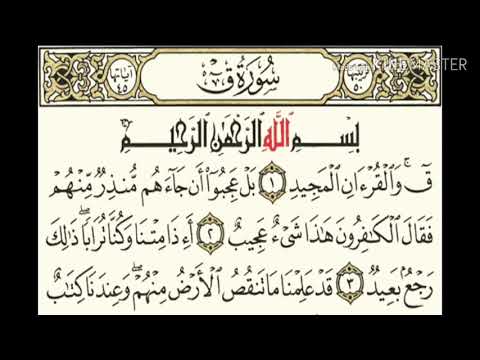 آياتها ٤٥
سُورَةُ قٓ
ترتيبها ٥٠
بِسْمِ اللَّهِ الرَّحْمَٰنِ الرَّحِيمِ
قٓ ۚ وَالْقُرْءَانِ الْمَجِيدِ ١ بَلْ عَجِبُوٓا۟ أَن جَآءَهُم مُّنذِرٌ مِّنْهُمْ
فَقَالَ الْكَٰفِرُونَ هَٰذَا شَىْءٌ عَجِيبٌ ٢ أَءِذَا مِتْنَا وَكُنَّا تُرَابًا ۖ ذَٰلِكَ
رَجْعٌۢ بَعِيدٌ ٣ قَدْ عَلِمْنَا مَا تَنقُصُ الْأَرْضُ مِنْهُمْ ۖ وَعِندَنَا كِتَٰبٌ